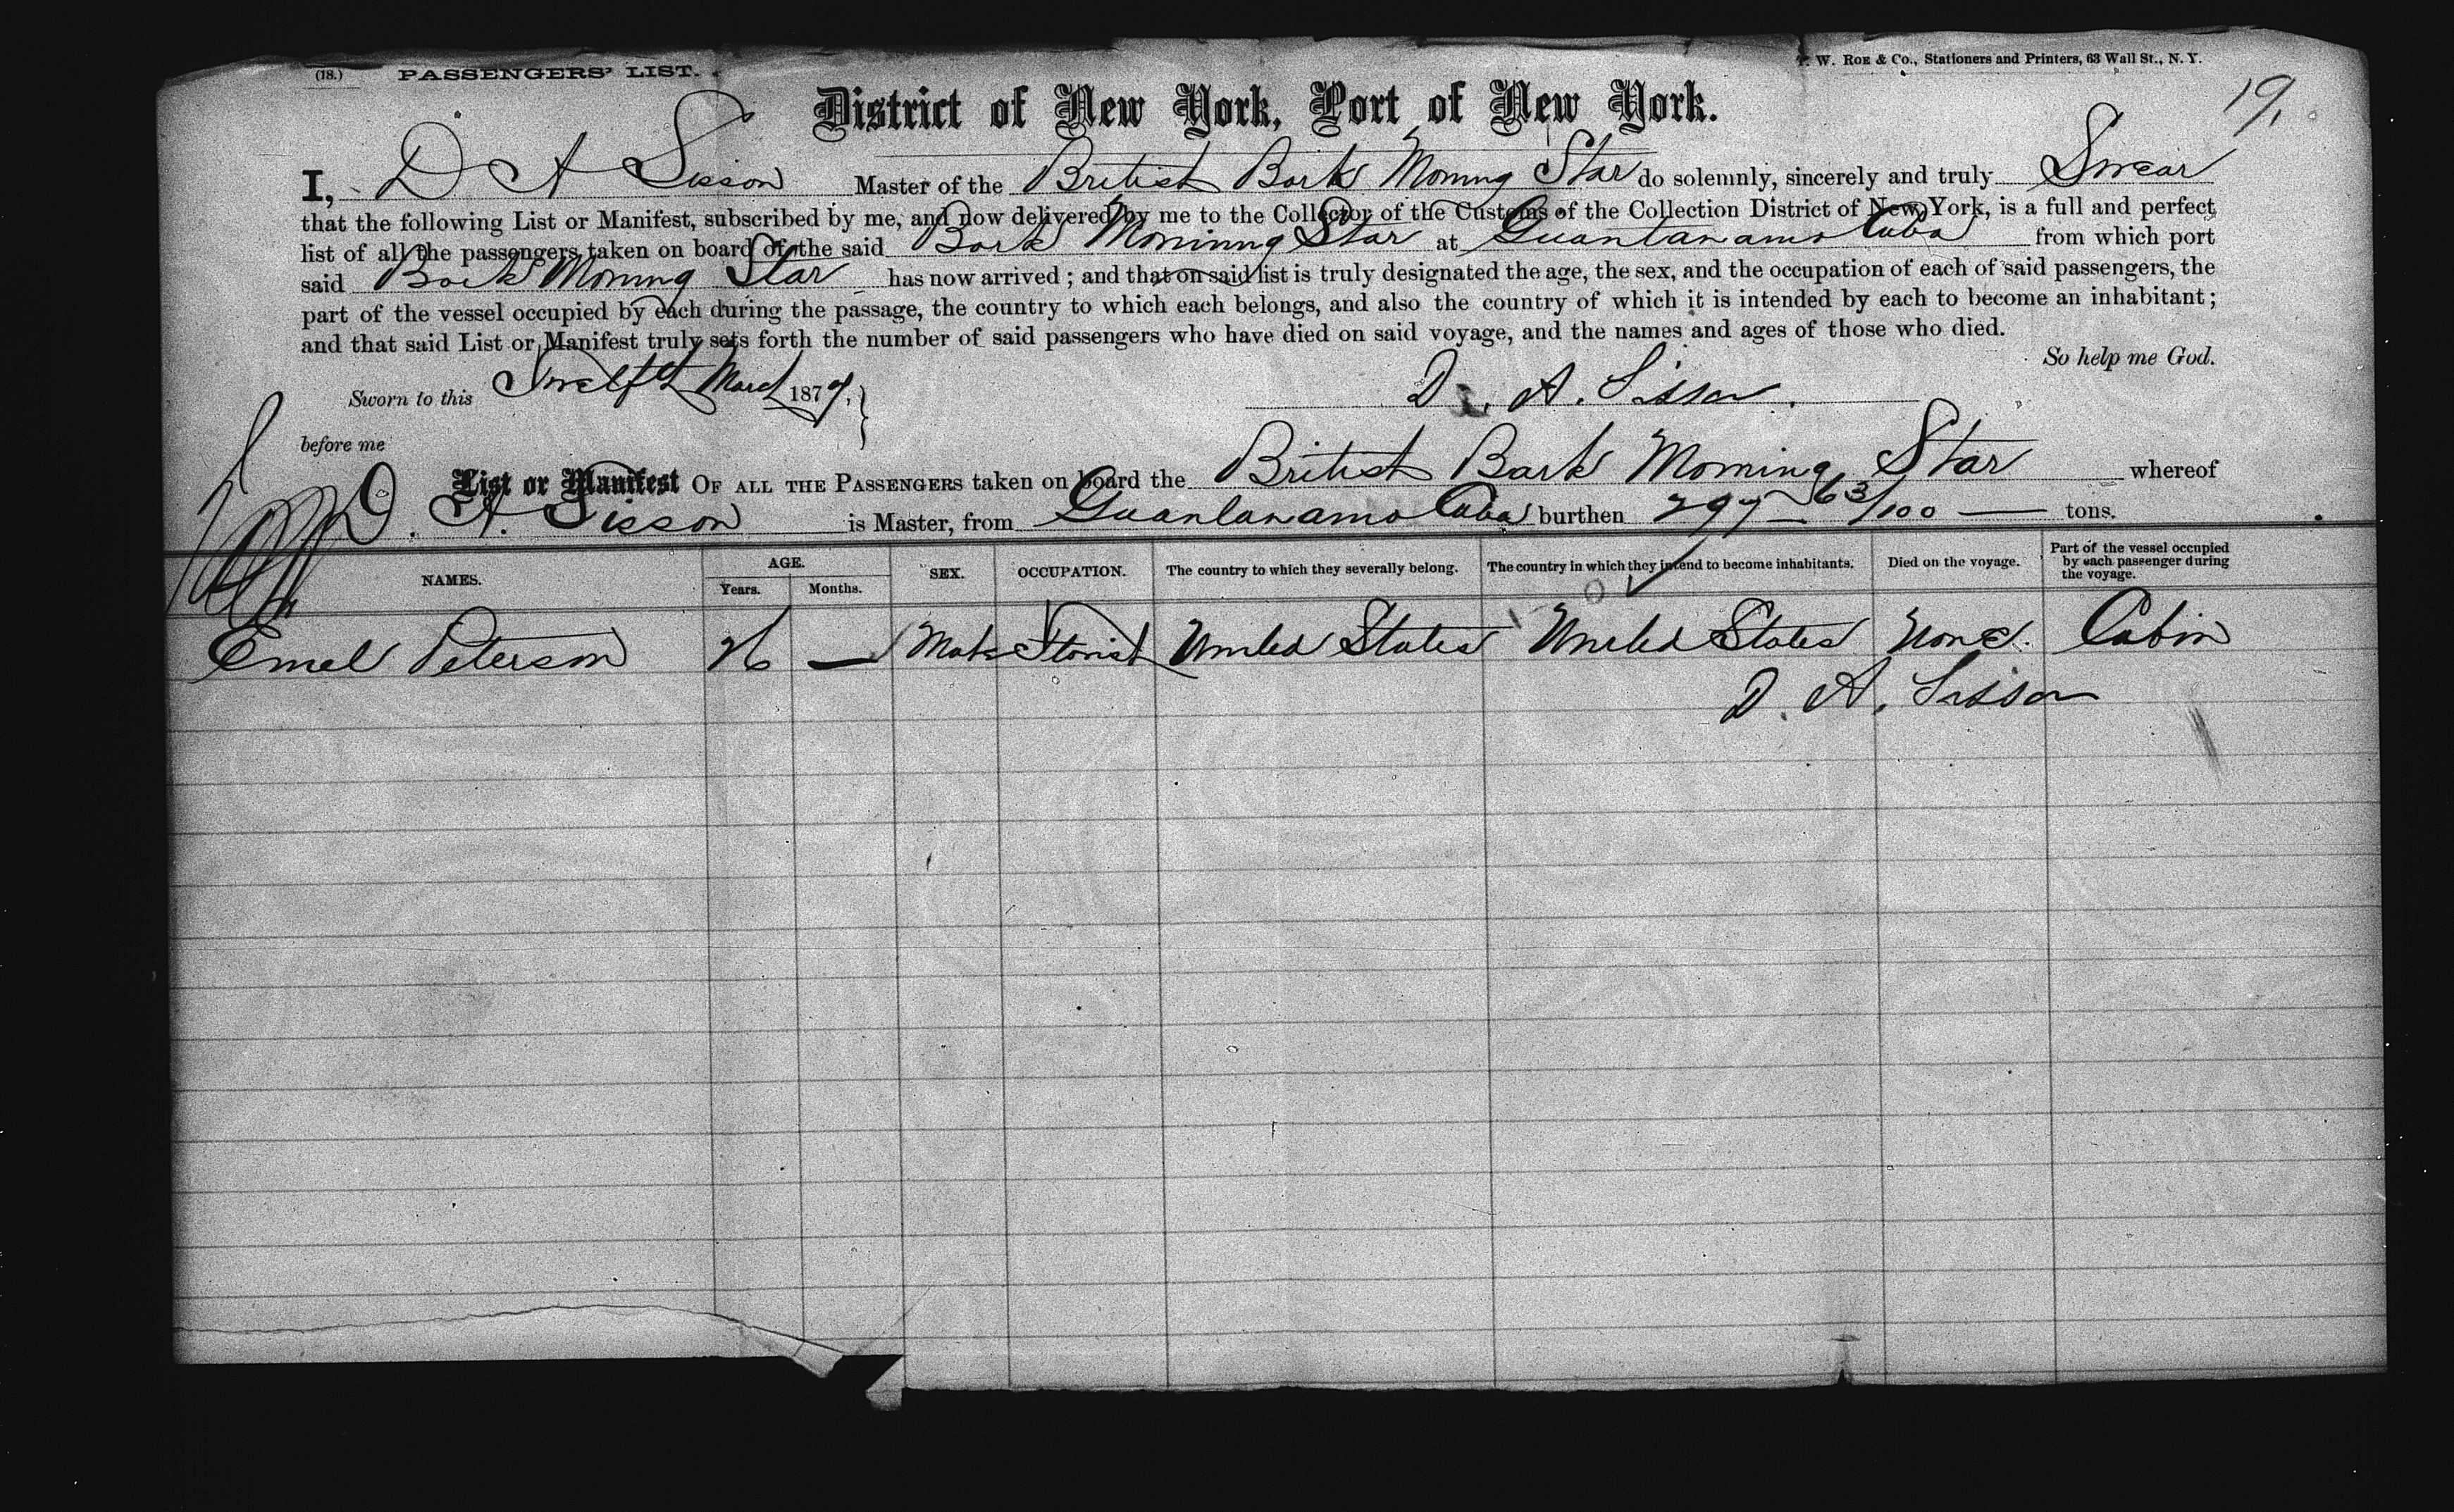 (18.) PASSENGERS' LIST.
T. W. ROE & CO., Stationers and Printers, 63 Wall St., N. Y.
19,
District of New York, Port of New York.
I, D A Sisson Master of the British Bark Morning Star do solemnly, sincerely and truly Swear
that the following List or Manifest, subscribed by me, and now delivered by me to the Collector of the Customs of the Collection District of New York, is a full and perfect
list of all the passengers taken on board of the said Bark Morninng Star at Guantanamo Cuba from which port
said Bark Morning Star has now arrived; and that on said list is truly designated the age, the sex, and the occupation of each of said passengers, the
part of the vessel occupied by each during the passage, the country to which each belongs, and also the country of which it is intended by each to become an inhabitant;
and that said List or Manifest truly sets forth the number of said passengers who have died on said voyage, and the names and ages of those who died.
So help me God.
Sworn to this Twelfth March 1879, D. A. Sisson.
before me
List or Manifest OF ALL THE PASSENGERS taken on board the British Bark Morning Star whereof
D. A. Sisson is Master, from Guantanamo Cuba burthen 297 - 63/100 — tons.
NAMES. AGE. Years. Months. SEX. OCCUPATION. The country to which they severally belong. The country in which they intend to become inhabitants. Died on the voyage. Part of the vessel occupied by each passenger during the voyage.
Emel Peterson 26 — Male Florist United States United States None. Cabin
D. A. Sisson